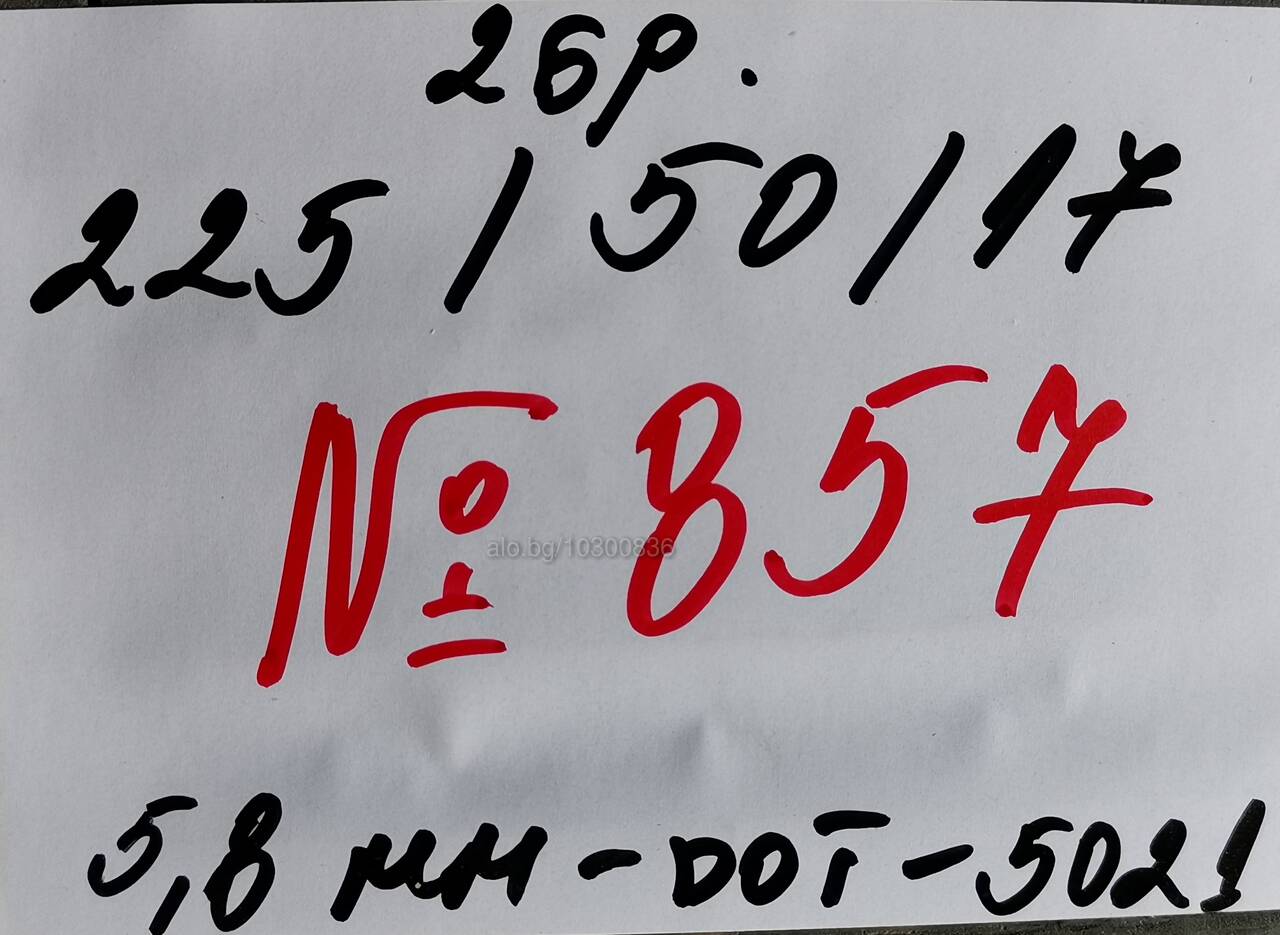 2бр.
225/50/17
№ 857
alo.bg/10300836
5,8 мм-DOT-5021